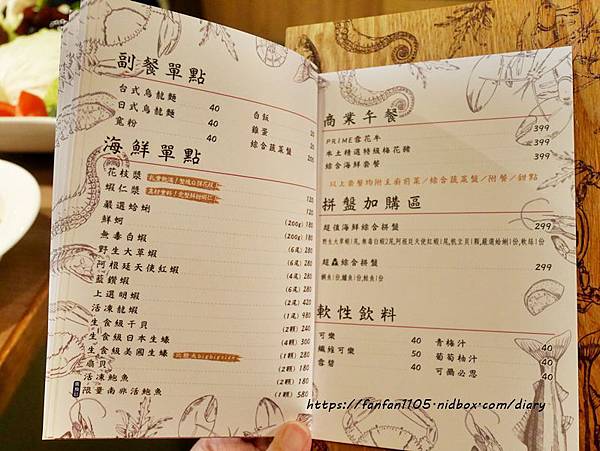 副餐單點
台式烏龍麵 40
日式烏龍麵 40
寬粉 40
白飯
雞蛋
綜合蔬菜盤
海鮮單點
花枝漿
蝦仁漿 120
嚴選蛤蜊 120
鮮蚵 (200g) 180
無毒白蝦 (200g)
野生大草蝦 (6尾) 280
阿根廷天使紅蝦 (6尾)
藍鑽蝦 (4尾) 280
上選明蝦 (6尾) 280
活凍龍蝦 (2尾) 420
生食級干貝 (1尾) 980
生食級日本生蠔 (2顆) 240
生食級美國生蠔 比較大bigbigsize (4顆) 380
扇貝 (1顆) 280
活凍鮑魚 (2顆)
限量南非活鮑魚 (1顆) 580
商業午餐
PRIME雪花牛 399
本土精選特級梅花豬 399
綜合海鮮套餐 399
以上套餐均附主廚前菜/綜合蔬菜盤/附餐/甜點
拼盤加購區
超值海鮮綜合拼盤 299
超蟲綜合拼盤 299
鯛魚1份,鱸魚1份,鮭魚1份
軟性飲料
可樂 40
纖維可樂 50
雪碧 40
青梅汁 40
葡萄柚汁 40
可爾必思 40
https://fanfan1105.nidbox.com/diary